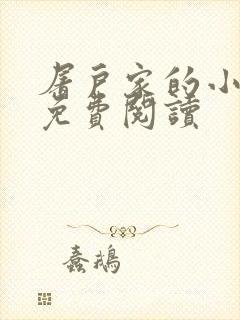 屠戶家的小
免費閱讀
蠢鵝